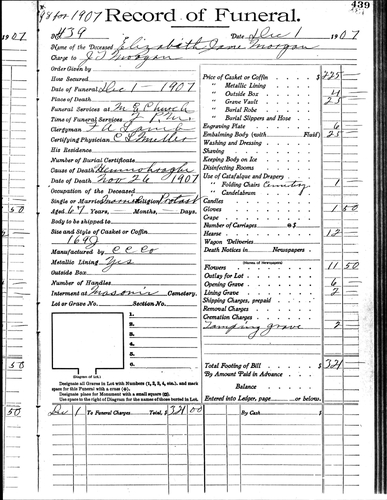 439
98 for 1907 Record of Funeral.
1907
No. 439 Date Dec 1 1907
Name of the Deceased Elizabeth Jane Morgan
Charge to J T Morgan
Order Given by
How Secured
Date of Funeral Dec 1 - 1907
Place of Death
Funeral Services at M E Church
Time of Funeral Services 2 P. M.
Clergyman F A Lamb
Certifying Physician C L Muller
His Residence
Number of Burial Certificate
Cause of Death
Date of Death Nov 26 1907
Occupation of the Deceased
Single or Married Religion Protest
Aged 67 Years, — Months, — Days.
Body to be shipped to
Size and Style of Casket or Coffin
Manufactured by C C Co
Metallic Lining Yes
Outside Box
Number of Handles
Interment at Masonic Cemetery.
Lot or Grave No. Section No.
1.
2.
3.
4.
5.
6.
(Diagram of Lot.)
Designate all Graves in Lot with Numbers (1, 2, 3, 4, etc.), and mark
space for this Funeral with a cross (+).
Designate place for Monument with a small square (□).
Use space to the right of Diagram for the names of those buried in Lot.
Price of Casket or Coffin $ 225
" Metallic Lining
" Outside Box 4
" Grave Vault 25
" Burial Robe
" Burial Slippers and Hose
Engraving Plate 6
Embalming Body (with Fluid) 25
Washing and Dressing
Shaving
Keeping Body on Ice
Disinfecting Rooms
Use of Catafalque and Drapery
" Folding Chairs Cemetery 1
" Candelabrum
Candles
Gloves 1 50
Crape
Number of Carriages @ $
Hearse 12
Wagon Deliveries
Death Notices in Newspapers
(Names of Newspapers)
Flowers 11 50
Outlay for Lot
Opening Grave 6
Lining Grave 2
Shipping Charges, prepaid
Removal Charges
Cremation Charges
Tamping grave 2
Total Footing of Bill $ 321
By Amount Paid in Advance
Balance
Entered into Ledger, page or below.
Dec 1 To Funeral Charges Total, $ 321 00 By Cash $
50
50
50